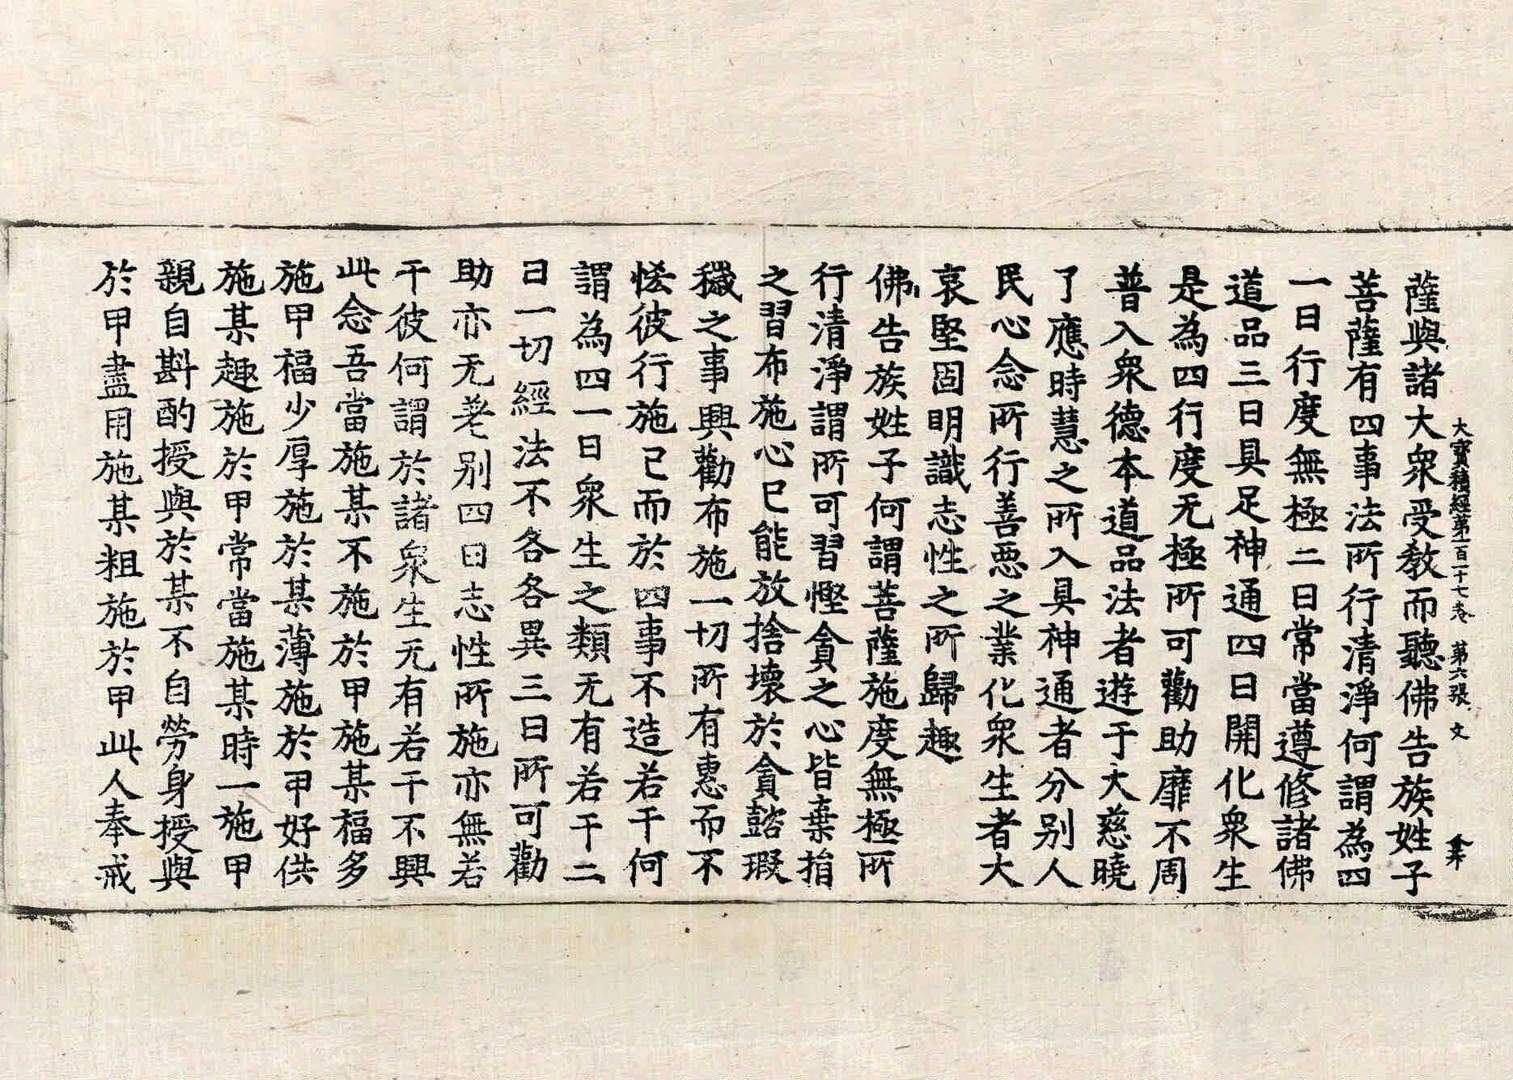 大寶積經第一百一十七卷 第六張 文
薩與諸大衆受教而聽佛告族姓子
菩薩有四事法所行清淨何謂為四
一曰行度無極二曰常當遵修諸佛
道品三曰具足神通四曰開化衆生
是為四行度无極所可勸助靡不周
普入衆德本道品法者遊于大慈曉
了應時慧之所入具神通者分別人
民心念所行善惡之業化衆生者大
哀堅固明識志性之所歸趣
佛告族姓子何謂菩薩施度無極所
行清淨謂所可習慳貪之心皆棄捐
之習布施心已能放捨壞於貪嫉瑕
穢之事興勸布施一切所有惠而不
恡彼行施已而於四事不造若干何
謂為四一曰衆生之類无有若干二
曰一切經法不各各異三曰所可勸
助亦无差別四曰志性所施亦無若
干彼何謂於諸衆生无有若干不興
此念吾當施某不施於甲施某福多
施甲福少厚施於某薄施於甲好供
施某趣施於甲常當施某時一施甲
親自斟酌授與於某不自勞身授與
於甲盡用施某粗施於甲此人奉戒